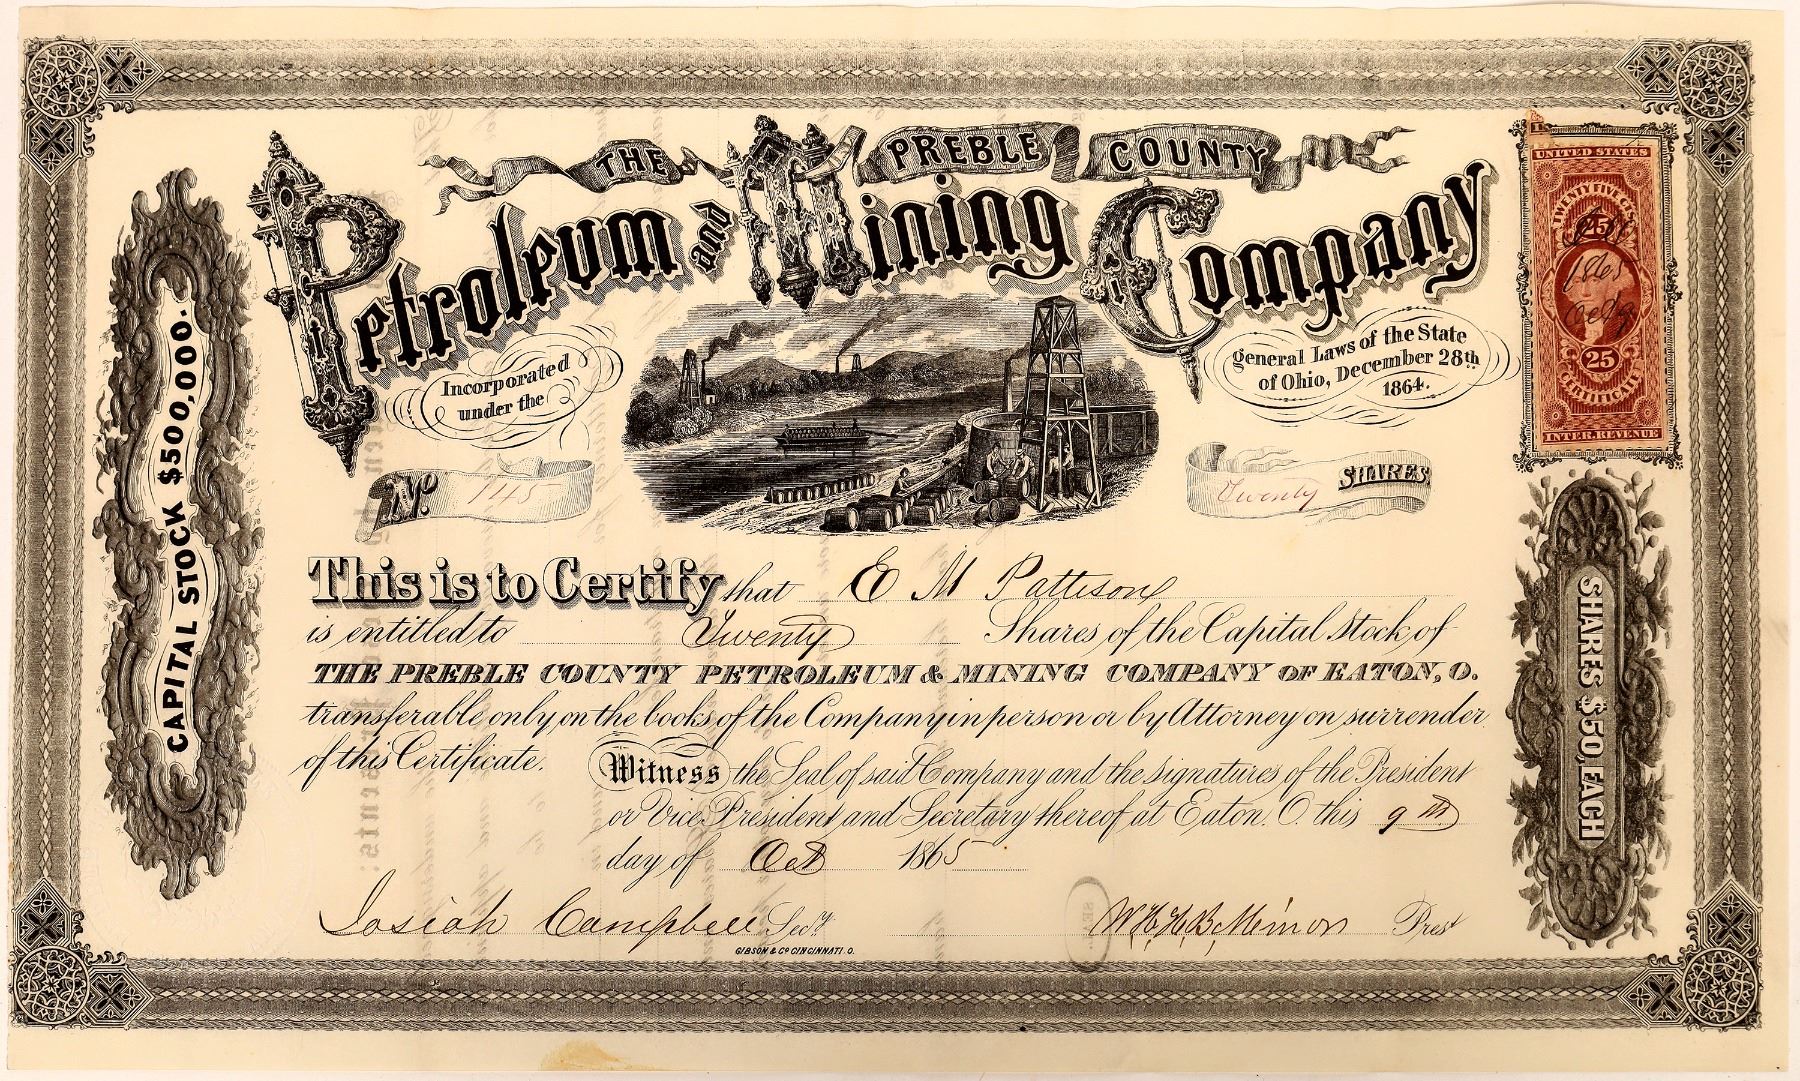 THE PREBLE COUNTY
Petroleum and Mining Company
Incorporated
under the
general Laws of the State
of Ohio, December 28th
1864.
UNITED STATES
TWENTY FIVE CTS.
25
1865
25
CERTIFICATE
INTER. REVENUE
CAPITAL STOCK $500,000.
No. 145
Twenty SHARES
SHARES $50, EACH
This is to Certify that E M Pattison
is entitled to Twenty Shares of the Capital Stock of
THE PREBLE COUNTY PETROLEUM & MINING COMPANY OF EATON, O.
transferable only on the books of the Company in person or by Attorney on surrender
of this Certificate. Witness the Seal of said Company and the signatures of the President
or Vice President and Secretary thereof at Eaton. O. this 9th
day of Oct 1865
Josiah Campbell Secy. Prest
GIBSON & Co CINCINNATI. O.